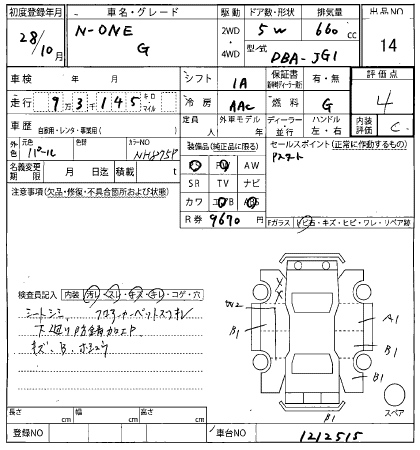 初度登録年月 車名・グレード 駆動 ドア数・形状 排気量 出品NO
28/10月 N-ONE G 2WD 4WD 5W 660cc 14
型式 DBA-JG1
車検 年 月 シフト IA 保証書 有・無 評価点
走行 9万3千145キロ マイル 冷房 AAC 燃料 G 4
車歴 自家用・レンタ・事業用( ) 定員 人 外車モデル 年 ディーラー 並行 ハンドル 左・右 内装評価 C
外色 元色 パール 色替 カラーNO NH875P 装備品(純正品に限る) セールスポイント(正常に作動するもの)
名義変更期限 月 日迄 積載 t PS PW AW
注意事項(欠品・修復・不具合箇所および状態) SR TV ナビ
カワ エアB ABS
R券 9670円 Fガラス トビ石・キズ・ヒビ・ワレ・リペア跡
検査員記入 内装 汚レ・スレ・キズ・キレ・コゲ・穴
シートシミ フロアーカーペットスリキレ
下廻り防錆加工P
キズ、B、ホシュウ
W2 A1
B1 B1
B1
B1 スペア
長さ cm 幅 cm 高さ cm
登録NO 車台NO 1212515